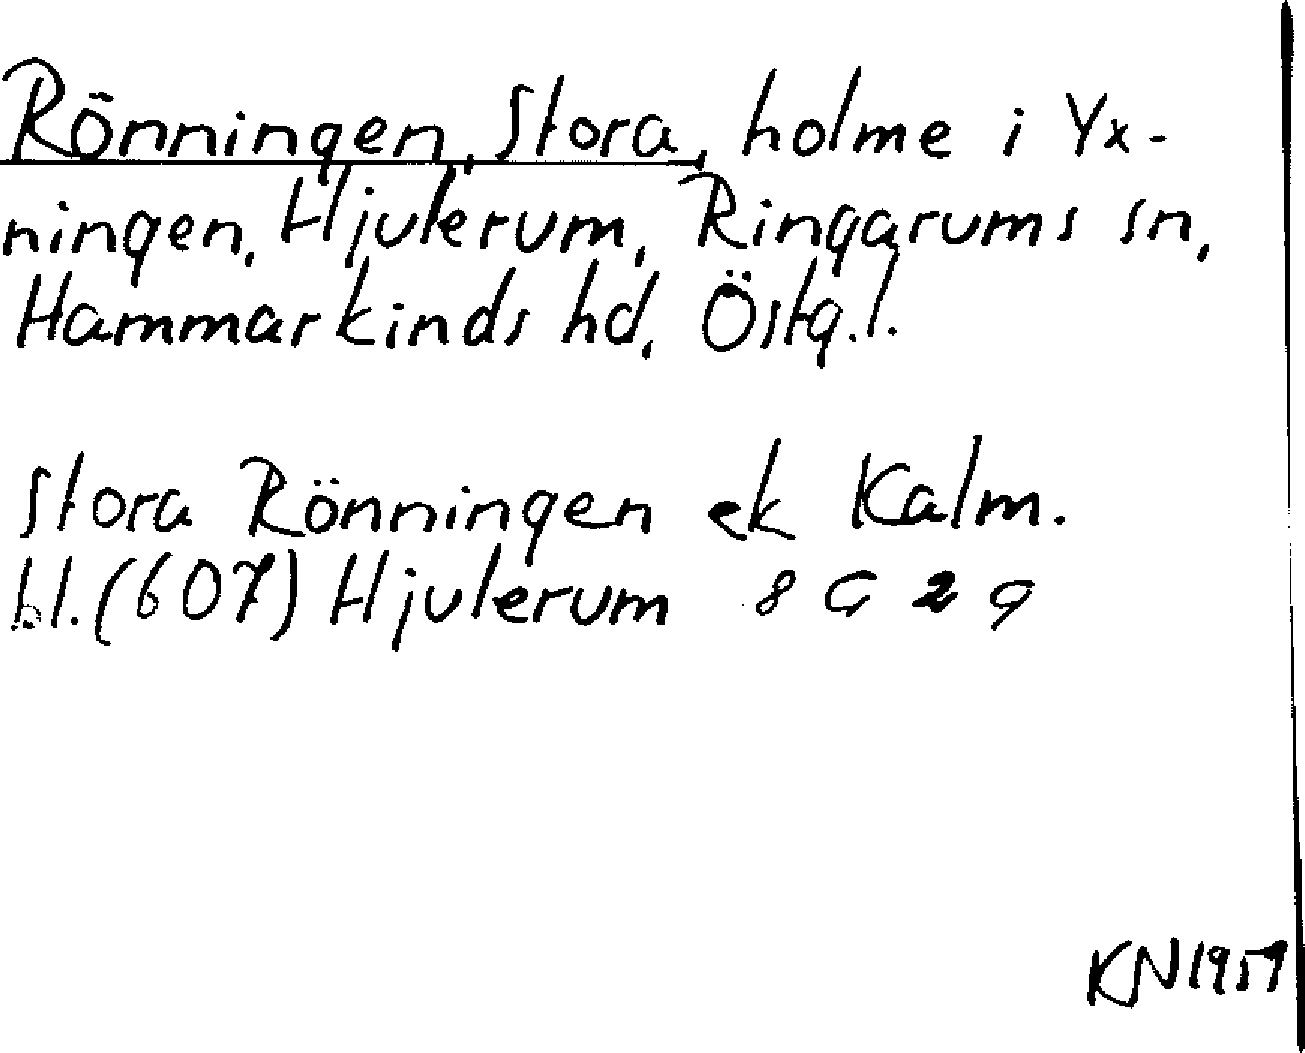 Rönningen, Stora, holme i Yx-
ningen, Hjulerum, Ringarums sn,
Hammarkinds hd, Östg.l.
Stora Rönningen ek Kalm.
bl. (607) Hjulerum 8 G 2 g
KN 1959